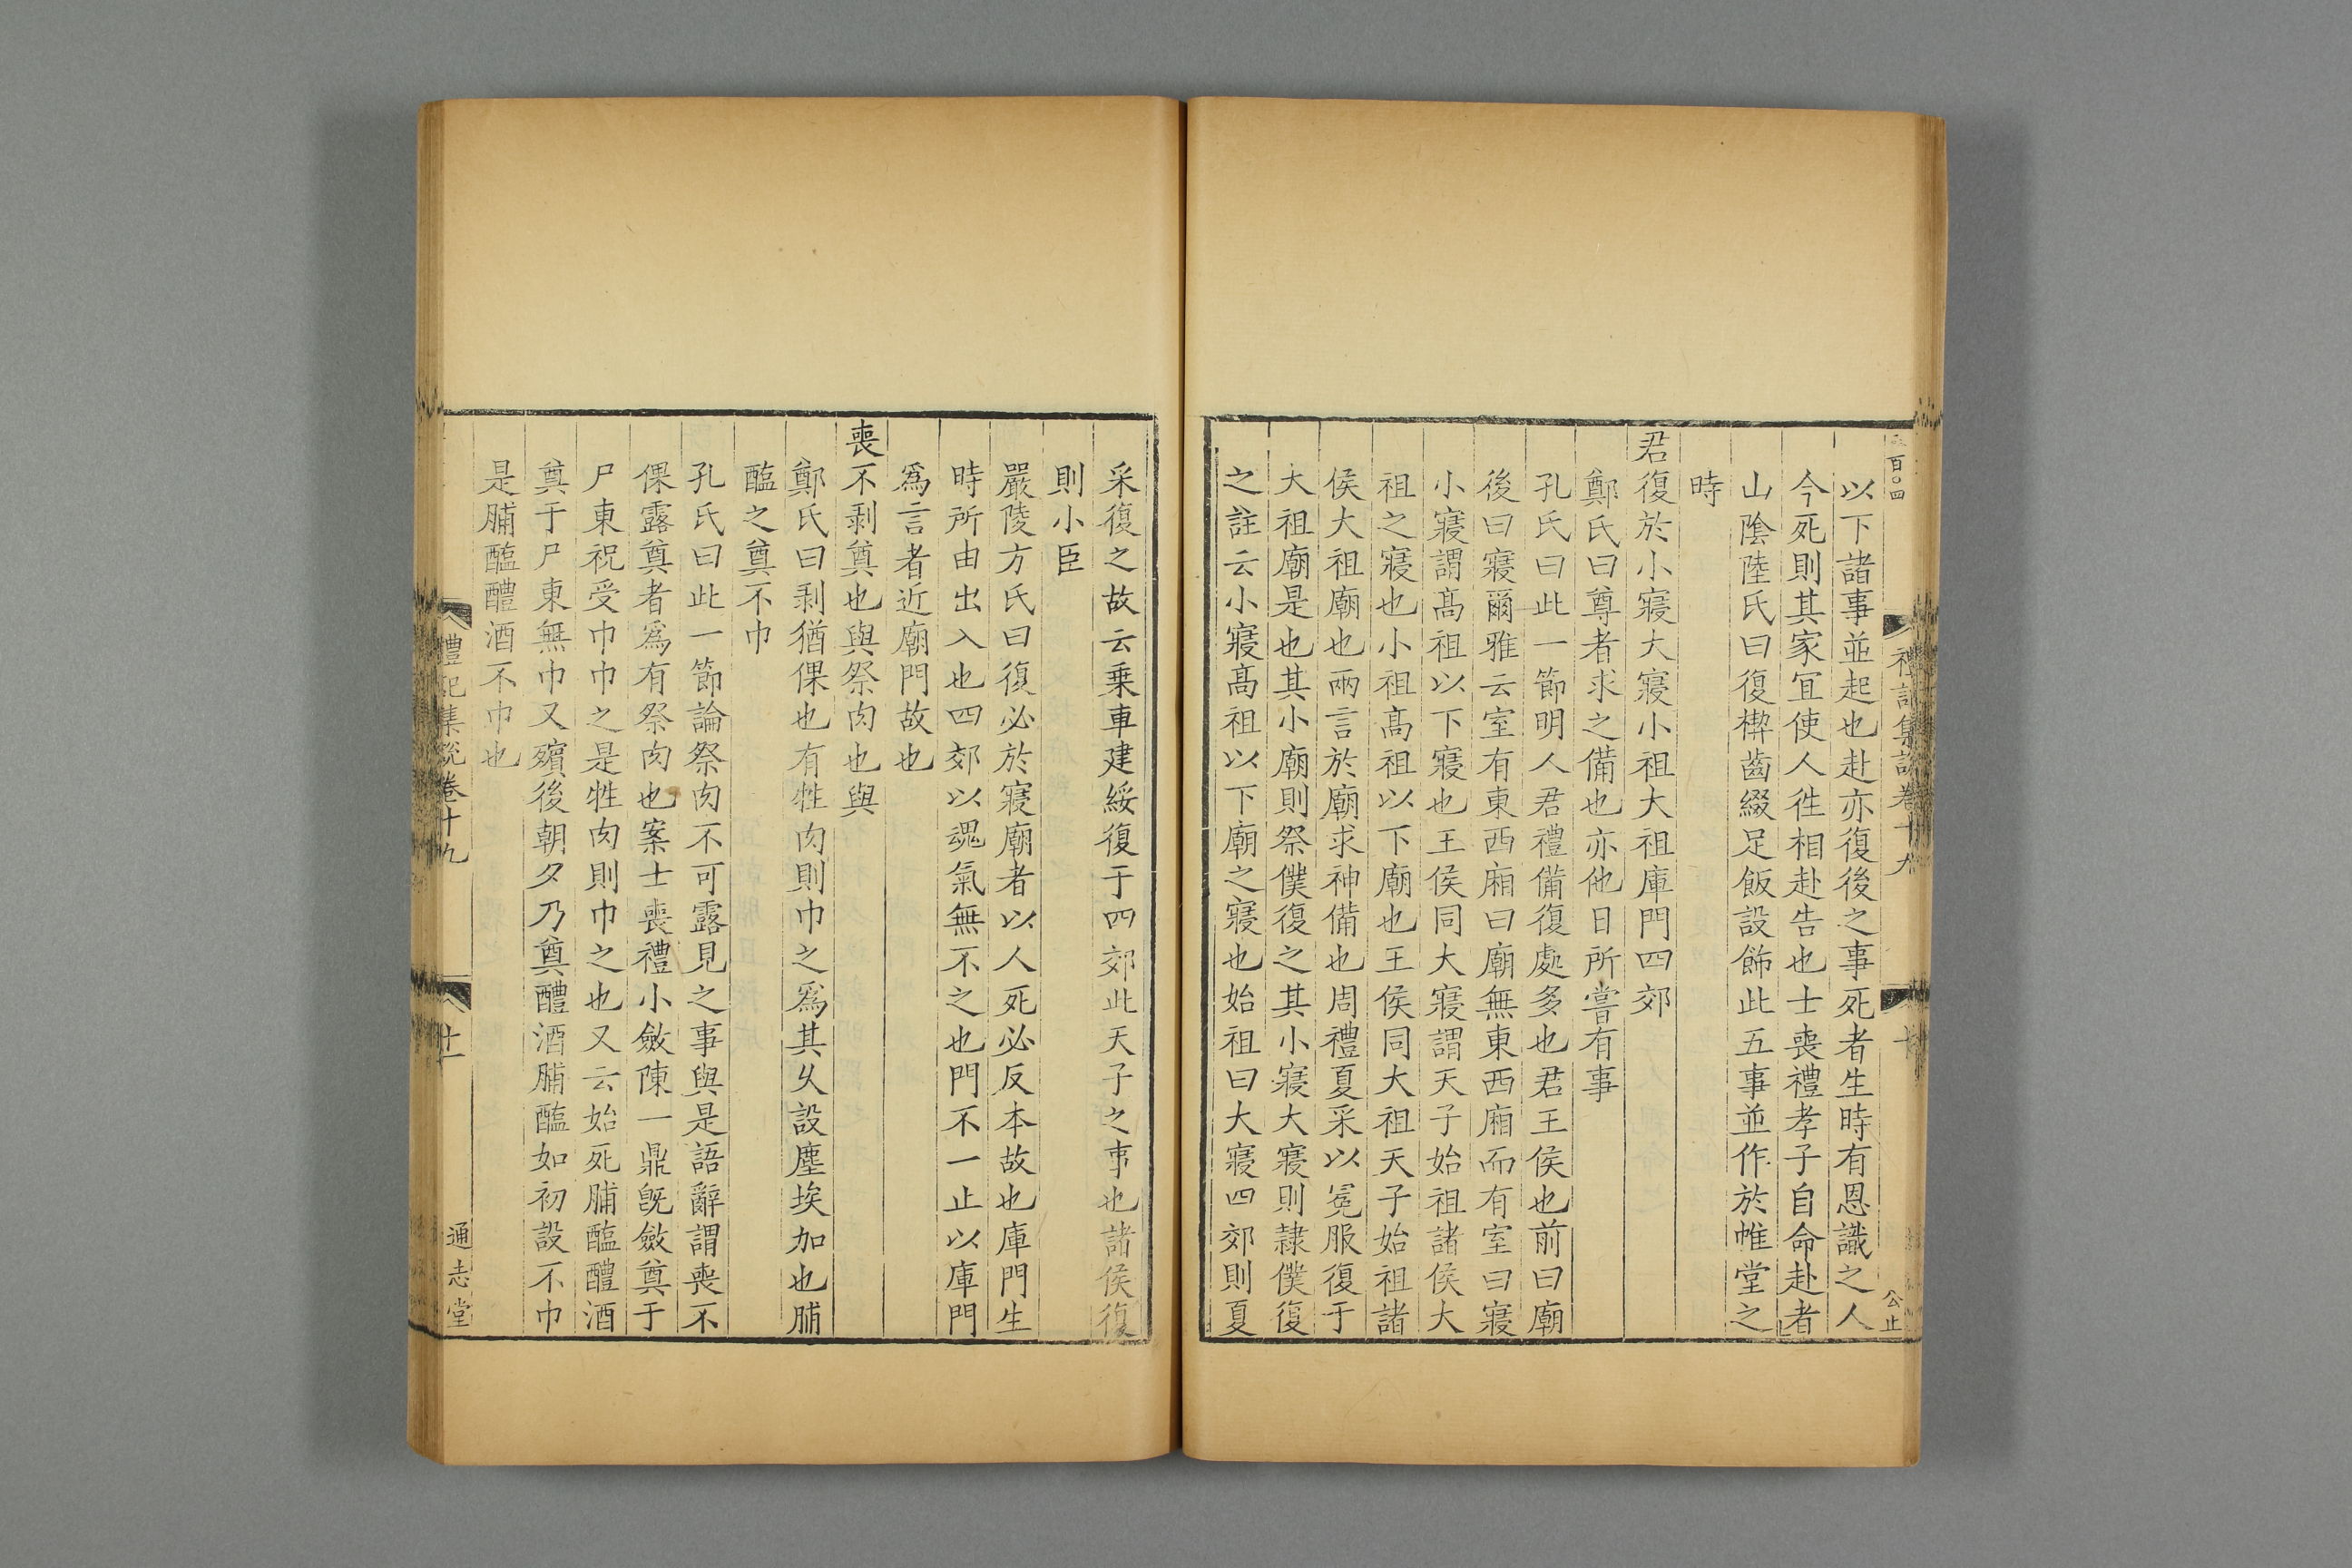 百〇四
禮記集說卷十九
十
公止
以下諸事並起也赴亦復後之事死者生時有恩識之人
今死則其家宜使人徃相赴告也士喪禮孝子自命赴者
山隂陸氏曰復楔齒綴足飯設飾此五事並作於帷堂之
時
君復於小寢大寢小祖大祖庫門四郊
鄭氏曰尊者求之備也亦他日所嘗有事
孔氏曰此一節明人君禮備復處多也君王侯也前曰廟
後曰寢爾雅云室有東西廂曰廟無東西廂而有室曰寢
小寢謂髙祖以下寢也王侯同大寢謂天子始祖諸侯大
祖之寢也小祖髙祖以下廟也王侯同大祖天子始祖諸
侯大祖廟也兩言於廟求神備也周禮夏采以冕服復于
大祖廟是也其小廟則祭僕復之其小寢大寢則隷僕復
之註云小寢髙祖以下廟之寢也始祖曰大寢四郊則夏
采復之故云乗車建綏復于四郊此天子之事也諸侯復
則小臣
嚴陵方氏曰復必於寢廟者以人死必反本故也庫門生
時所由出入也四郊以魂氣無不之也門不一止以庫門
爲言者近廟門故也
喪不剥奠也與祭肉也與
鄭氏曰剥猶倮也有牲肉則巾之爲其乆設塵埃加也脯
醢之奠不巾
孔氏曰此一節論祭肉不可露見之事與是語辭謂喪不
倮露奠者爲有祭肉也案士喪禮小斂陳一鼎旣斂奠于
尸東祝受巾巾之是牲肉則巾之也又云始死脯醢醴酒
奠于尸東無巾又殯後朝夕乃奠醴酒脯醢如初設不巾
是脯醢醴酒不巾也
禮記集說卷十九
十一
通志堂